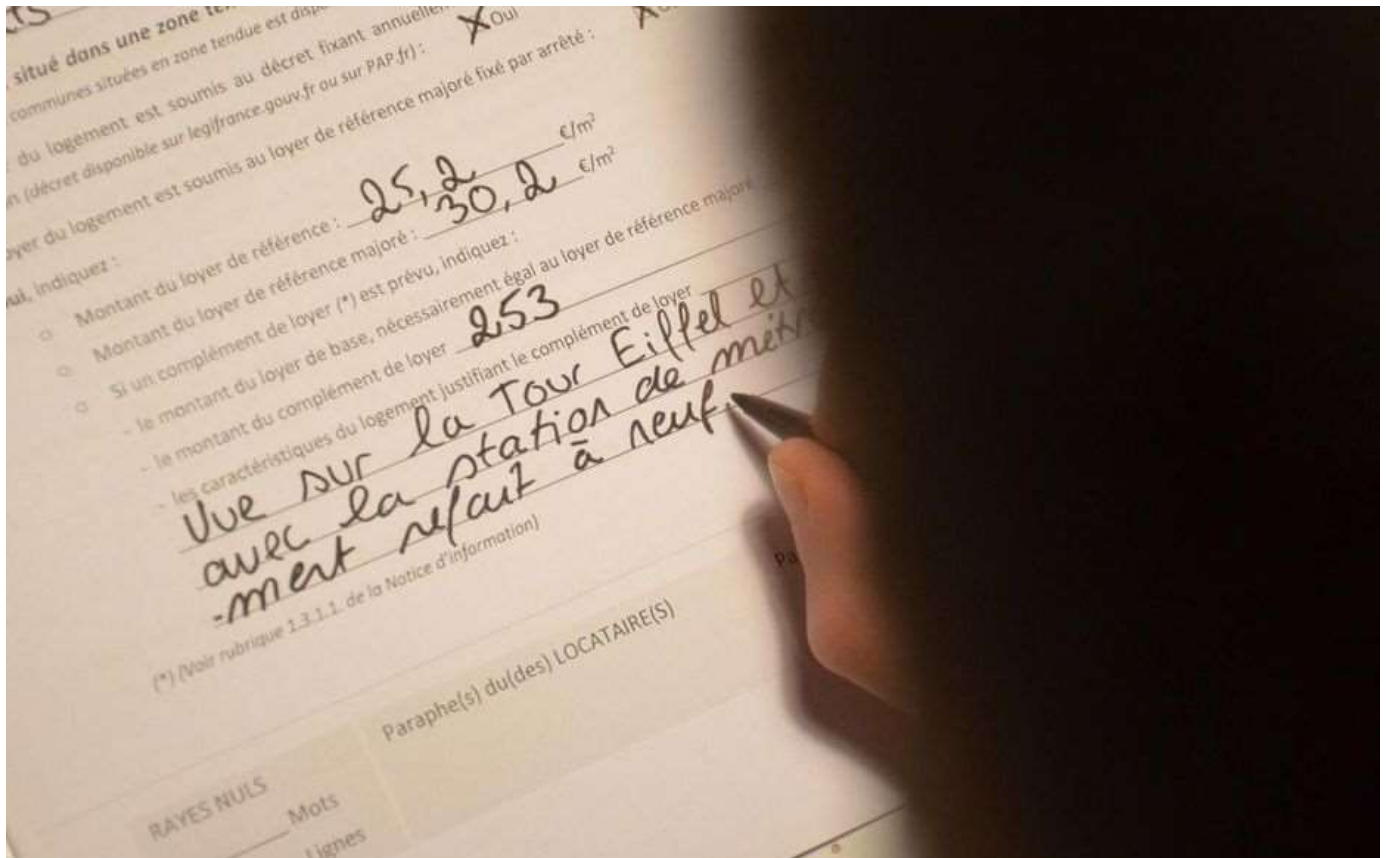 situé dans une zone
communes situées en zone tendue est
du logement est soumis au décret fixant
(décret disponible sur legifrance.gouv.fr ou sur PAP.fr) : X Oui
du logement est soumis au loyer de référence majoré fixé par arrêté : X
indiquez :
○ Montant du loyer de référence : 25,2 €/m²
○ Montant du loyer de référence majoré : 30,2 €/m²
○ Si un complément de loyer (*) est prévu, indiquez :
- le montant du loyer de base, nécessairement égal au loyer de référence majoré
- le montant du complément de loyer 253
- les caractéristiques du logement justifiant le complément de loyer
Vue sur la Tour Eiffel et
avec la station de
-ment refait à neuf.
(*) (Voir rubrique 1.3.1.1. de la Notice d'information)
Paraphe(s) du(des) LOCATAIRE(S)
RAYES NULS
Mots
Lignes